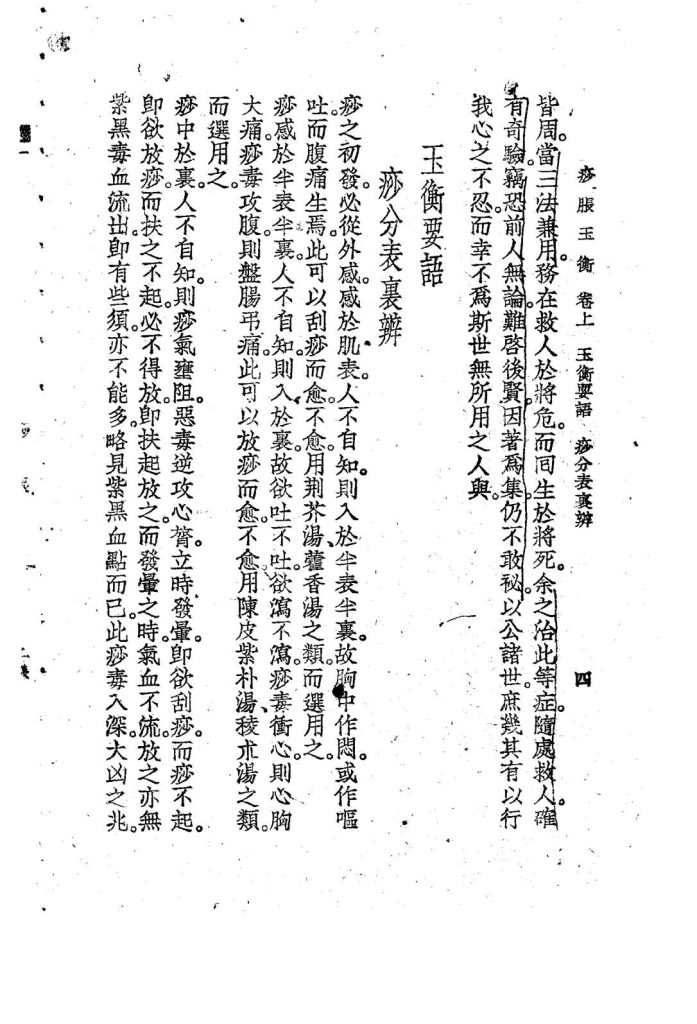 痧脹玉衡 卷上 玉衡要語 痧分表裏辨 四
皆周。當三法兼用。務在救人於將危。而囘生於將死。余之治此等症。隨處救人。確
有奇驗。竊恐前人無論。難啓後賢。因著爲集。仍不敢祕。以公諸世。庶幾其有以行
我心之不忍。而幸不爲斯世無所用之人與。
玉衡要語
痧分表裏辨
痧之初發。必從外感。感於肌表。人不自知。則入於半表半裏。故胸中作悶。或作嘔
吐。而腹痛生焉。此可以刮痧而愈。不愈。用荆芥湯、藿香湯之類。而選用之。
痧感於半表半裏。人不自知。則入於裏。故欲吐不吐。欲瀉不瀉。痧毒衝心。則心胸
大痛。痧毒攻腹。則盤腸弔痛。此可以放痧而愈。不愈。用陳皮紫朴湯、稜朮湯之類。
而選用之。
痧中於裏。人不自知。則痧氣壅阻。惡毒逆攻心膂。立時發暈。卽欲刮痧。而痧不起。
卽欲放痧。而扶之不起。必不得放。卽扶起放之。而發暈之時。氣血不流。放之亦無
紫黑毒血流出。卽有些須。亦不能多。略見紫黑血點而已。此痧毒入深。大凶之兆。